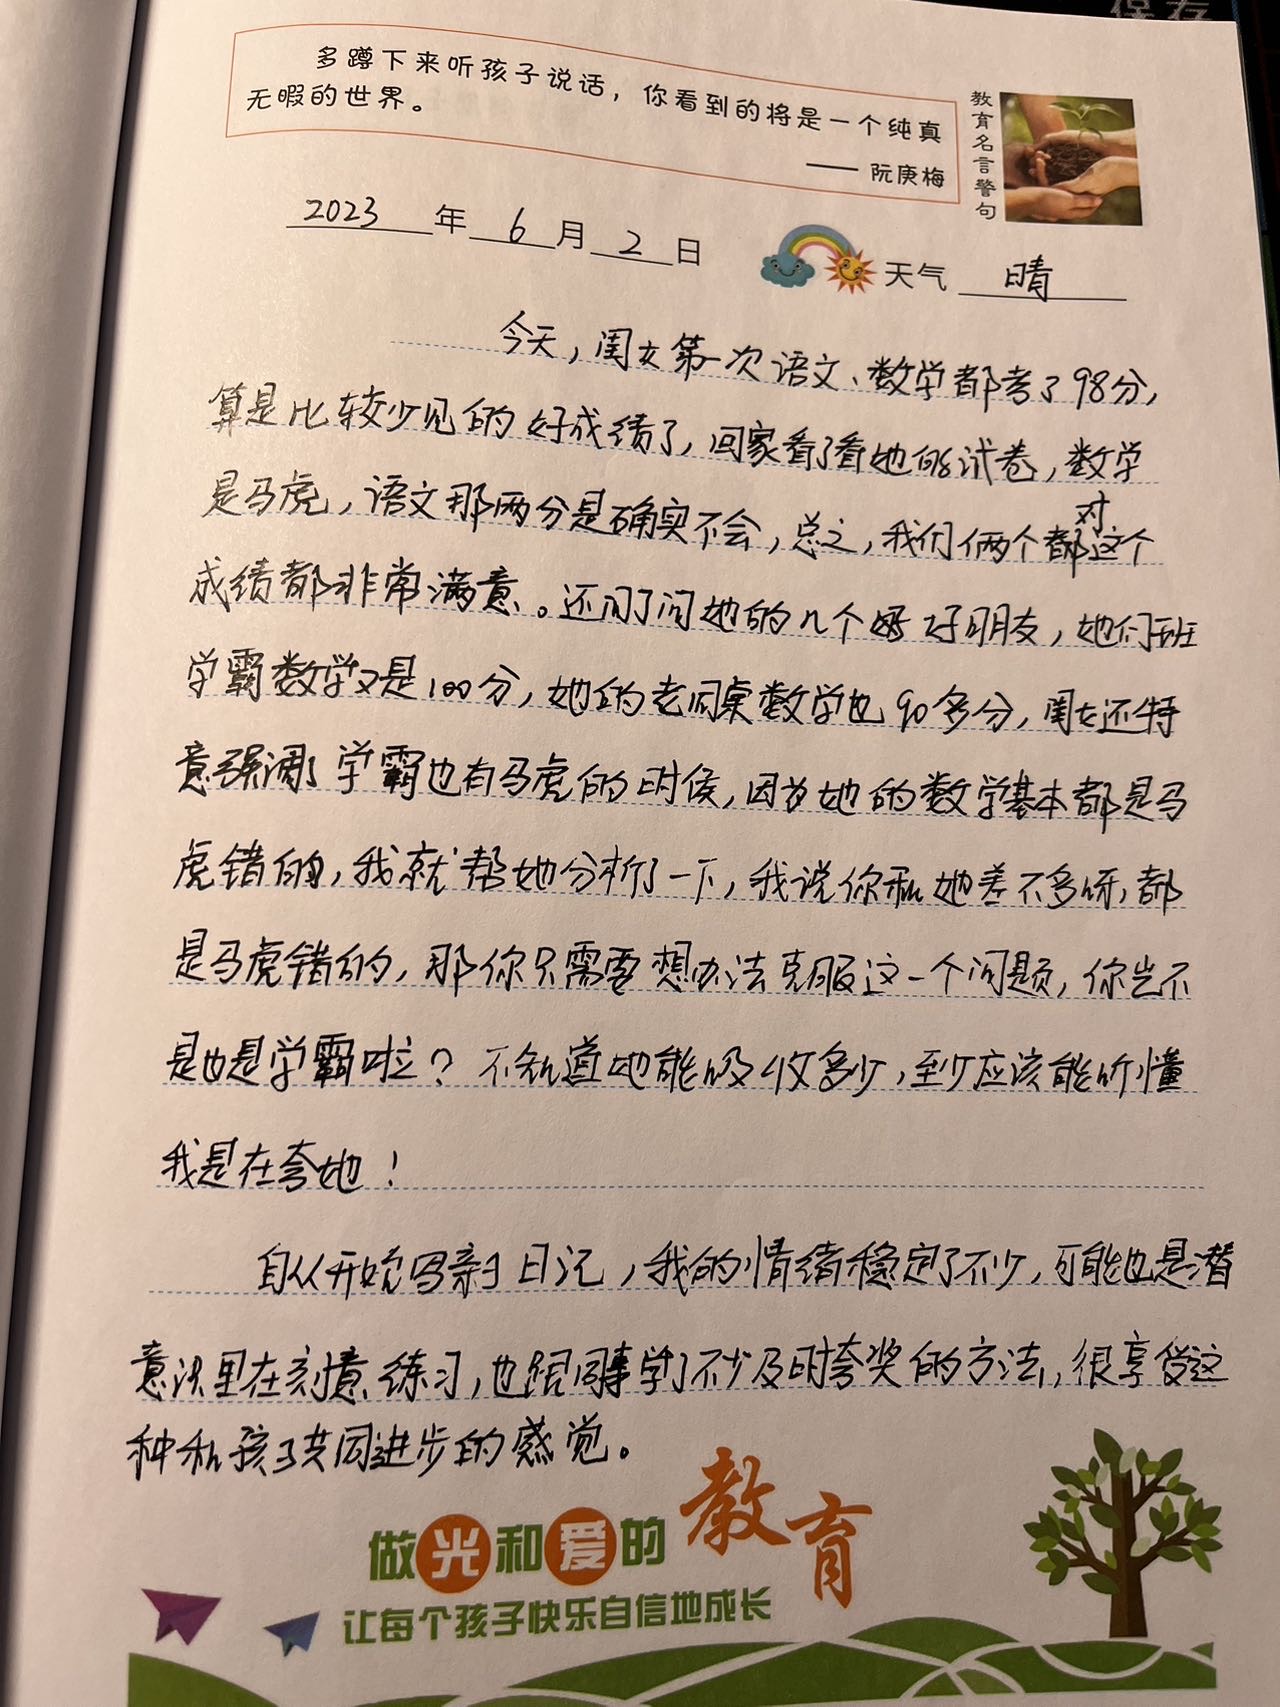 保存
多蹲下来听孩子说话，你看到的将是一个纯真
无暇的世界。
—— 阮庚梅
教育名言警句
2023年6月2日
天气 晴
今天，闺女第一次语文、数学都考了98分，
算是比较少见的好成绩了，回家看了看她的试卷，数学
是马虎，语文那两分是确实不会，总之，我们俩个都对这个
成绩都非常满意。还问了问她的几个好朋友，她们班
学霸数学又是100分，她的老同桌数学也90多分，闺女还特
意强调了学霸也有马虎的时候，因为她的数学基本都是马
虎错的，我就帮她分析了一下，我说你和她差不多呀，都
是马虎错的，那你只需要想办法克服这一个问题，你岂不
是也是学霸啦？不知道她能吸收多少，至少应该能听懂
我是在夸她！
自从开始写亲子日记，我的情绪稳定了不少，可能也是潜
意识里在刻意练习，也跟同事学了不少及时夸奖的方法，很享受这
种和孩子共同进步的感觉。
做光和爱的教育
让每个孩子快乐自信地成长